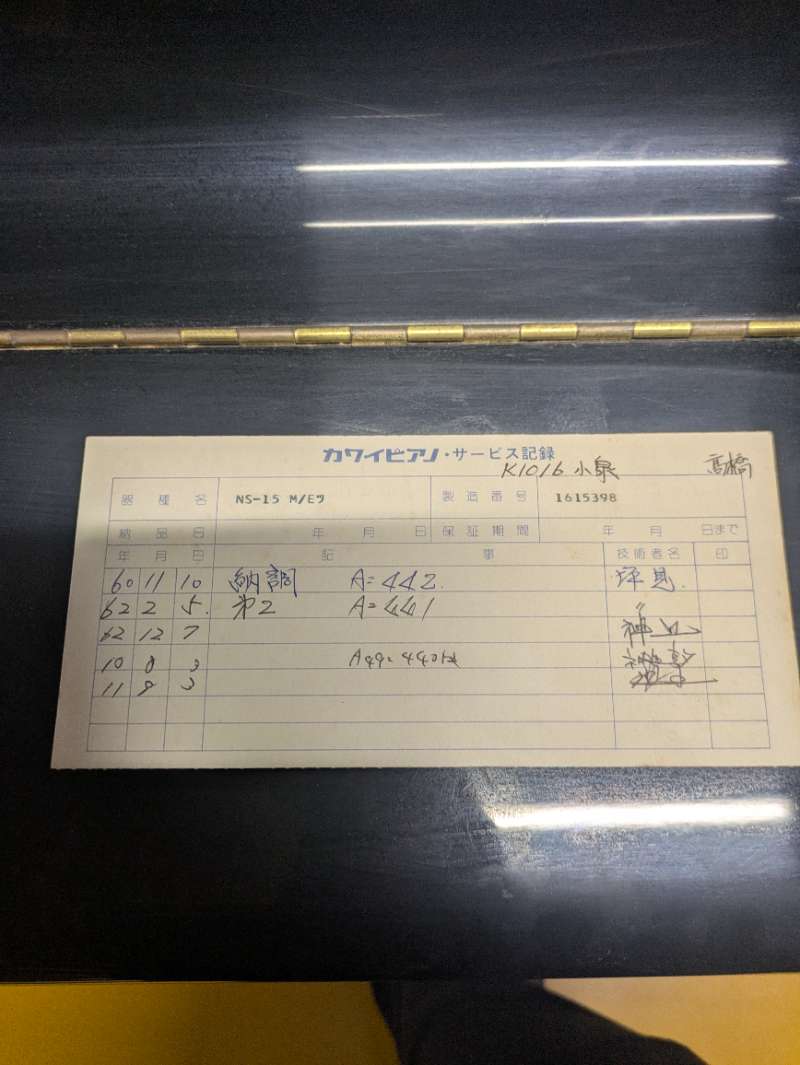 カワイピアノ・サービス記録
K1016 小泉 高橋
器種名 NS-15 M/Eウ 製造番号 1615398
納品日 年 月 日 保証期間 年 月 日まで
年 月 日 記 事 技術者名 印
60 11 10 納調 A=442.
62 2 5. 才2 A=441 〃
62 12 7
10 8 3 A49=440Hz
11 8 3